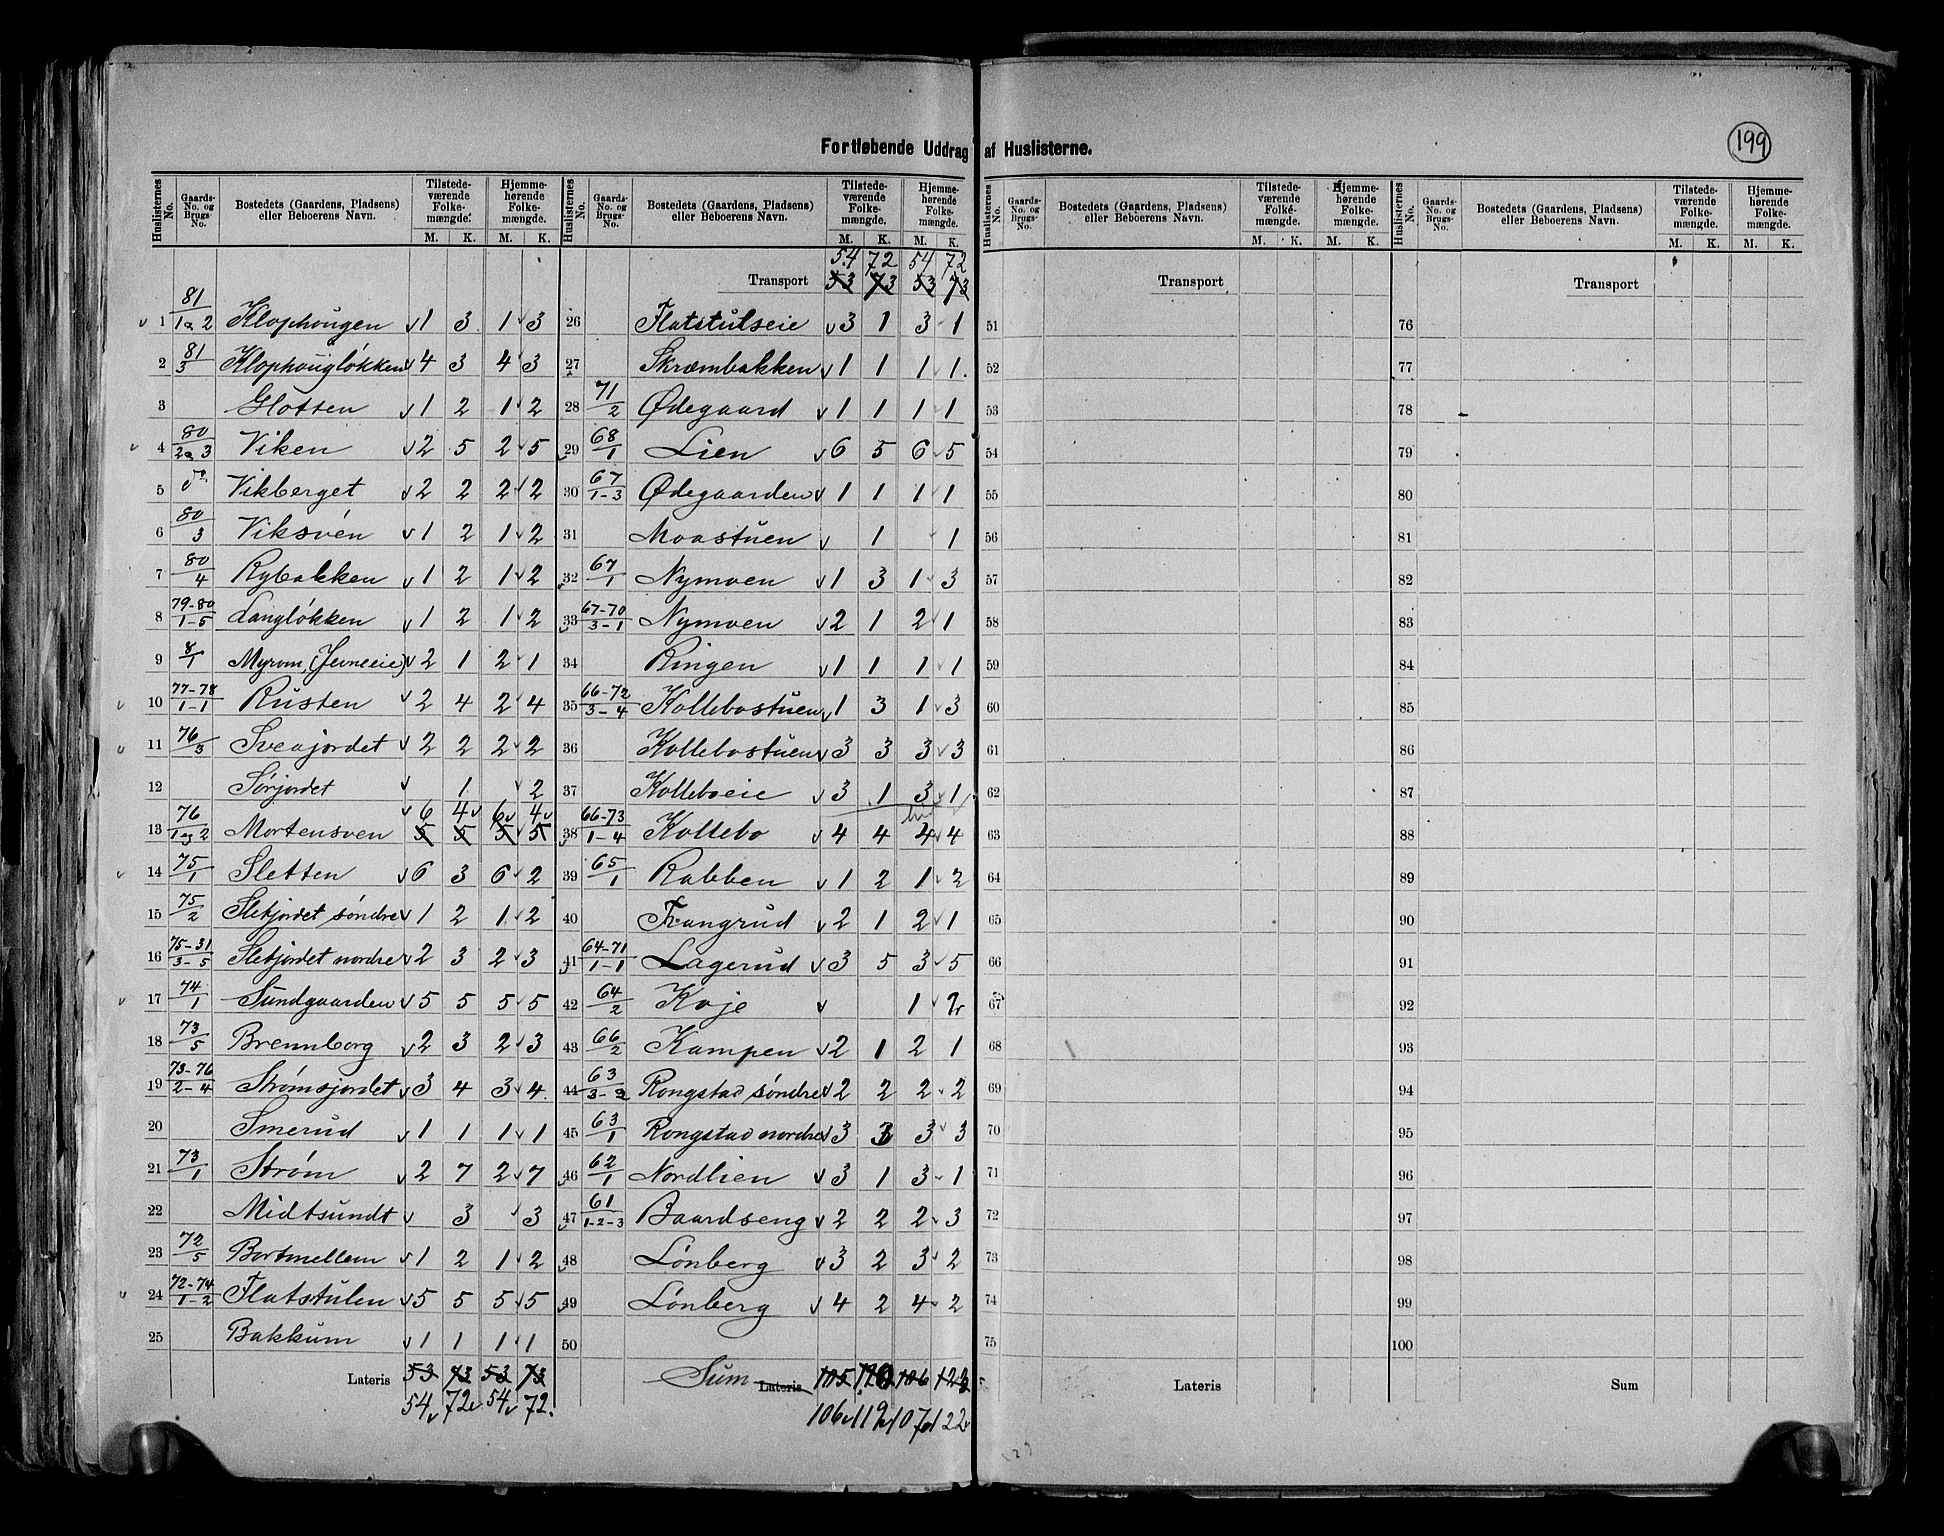 Fortløbende Uddrag af Huslisterne.
199
Huslisternes No. | Gaards-No. og Brugs-No. | Bostedets (Gaardens, Pladsens) eller Beboerens Navn. | Tilstedeværende Folkemængde. M. K. | Hjemmehørende Folkemængde. M. K.
1 81/1 og 2 Klophougen 1 3 1 3
2 81/3 Klophougløkken 4 3 4 3
3 Slotten 1 2 1 2
4 80/2 og 3 Viken 2 5 2 5
5 do Vikberget 2 2 2 2
6 80/3 Viksven 1 2 1 2
7 80/4 Rybakken 1 2 1 2
8 79-80/1-5 Langløkken 1 2 1 2
9 8/1 Myrom (Jevneeie) 2 1 2 1
10 77-78/1-1 Rusten 2 4 2 4
11 76/3 Sveajordet 2 2 2 2
12 Sørjordet 1 2
13 76/1 og 2 Mortensven 6 4 6 4
5 5 5 5
14 75/1 Sletten 6 3 6 2
15 75/2 Sletjordet søndre 1 2 1 2
16 75-31/3-5 Sletjordet nordre 2 3 2 3
17 74/1 Sundgaarden 5 5 5 5
18 73/5 Brennborg 2 3 2 3
19 73-76/2-4 Strømsjordet 3 4 3 4
20 Smerud 1 1 1 1
21 73/1 Strøm 2 7 2 7
22 Midtsundt 3 3
23 72/5 Bortmellem 1 2 1 2
24 72-74/1-2 Flatstulen 5 5 5 5
25 Bakkum 1 1 1 1
Lateris 53 73 53 73
54 72 54 72.
Huslisternes No. | Gaards-No. og Brugs-No. | Bostedets (Gaardens, Pladsens) eller Beboerens Navn. | Tilstedeværende Folkemængde. M. K. | Hjemmehørende Folkemængde. M. K.
54 72 54 72
Transport 53 73 53 73
26 Flatstulseie 3 1 3 1
27 Skræmbakken 1 1 1 1
28 71/2 Ødegaard 1 1 1 1
29 68/1 Lien 6 5 6 5
30 67/1-3 Ødegaarden 1 1 1 1
31 Moastuen 1 1
32 67/1 Nymoen 1 3 1 3
33 67-70/3-1 Nymoen 2 1 2 1
34 Ringen 1 1 1 1
35 66-72/3-4 Kollebostuen 1 3 1 3
36 Kollebostuen 3 3 3 3
37 Kolleboeie 3 1 3 1
38 66-73/1-4 Kollebo 4 4 4 4
39 65/1 Rabben 1 2 1 2
40 Trangrud 2 1 2 1
41 64-71/1-1 Lagerud 3 5 3 5
42 64/2 Koje 1 2
43 66/2 Kampen 2 1 2 1
44 63/3-2 Rongstad søndre 2 2 2 2
45 63/1 Rongstad nordre 3 3 3 3
46 62/1 Nordlien 3 1 3 1
47 61/1-2-3 Baardseng 2 2 2 3
48 Lønberg 3 2 3 2
49 Lønberg 4 2 4 2
50
Sum Lateris 105 120 106 123
106 119 107 122
Huslisternes No. | Gaards-No. og Brugs-No. | Bostedets (Gaardens, Pladsens) eller Beboerens Navn. | Tilstedeværende Folkemængde. M. K. | Hjemmehørende Folkemængde. M. K.
Transport
51
52
53
54
55
56
57
58
59
60
61
62
63
64
65
66
67
68
69
70
71
72
73
74
75
Lateris
Huslisternes No. | Gaards-No. og Brugs-No. | Bostedets (Gaardens, Pladsens) eller Beboerens Navn. | Tilstedeværende Folkemængde. M. K. | Hjemmehørende Folkemængde. M. K.
Transport
76
77
78
79
80
81
82
83
84
85
86
87
88
89
90
91
92
93
94
95
96
97
98
99
100
Sum